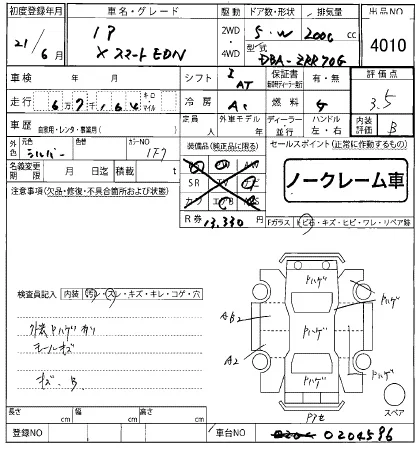 初度登録年月
車名・グレード
駆動
ドア数・形状
排気量
出品NO
21/6月
2WD
4WD
5・W
2000 cc
型式
DBA-ZRR70G
4010
車検 年 月
シフト
AT
保証書
有・無
評価点
3.5
走行 6万7千164 キロ マイル
冷房
AC
燃料
G
車歴
自家用・レンタ・事業用( )
定員
人
外車モデル
年
ディーラー
並行
ハンドル
左・右
内装
評価
B
外色
元色
シルバー
色替
カラーNO
1F7
装備品(純正品に限る)
セールスポイント(正常に作動するもの)
名義変更期限
月 日迄
積載 t
SR
ナビ
カワ
ノークレーム車
注意事項(欠品・修復・不具合箇所および状態)
R券
13,330円
Fガラス トビ石・キズ・ヒビ・ワレ・リペア跡
検査員記入
内装
汚レ・スレ・キズ・キレ・コゲ・穴
外装Pハゲ有り
モールキズ
キズ・B
Pハゲ
Pハゲ
Pハゲ
Pハゲ
Pハゲ
AB2
A2
スペア
長さ cm
幅 cm
高さ cm
登録NO
車台NO
0204596